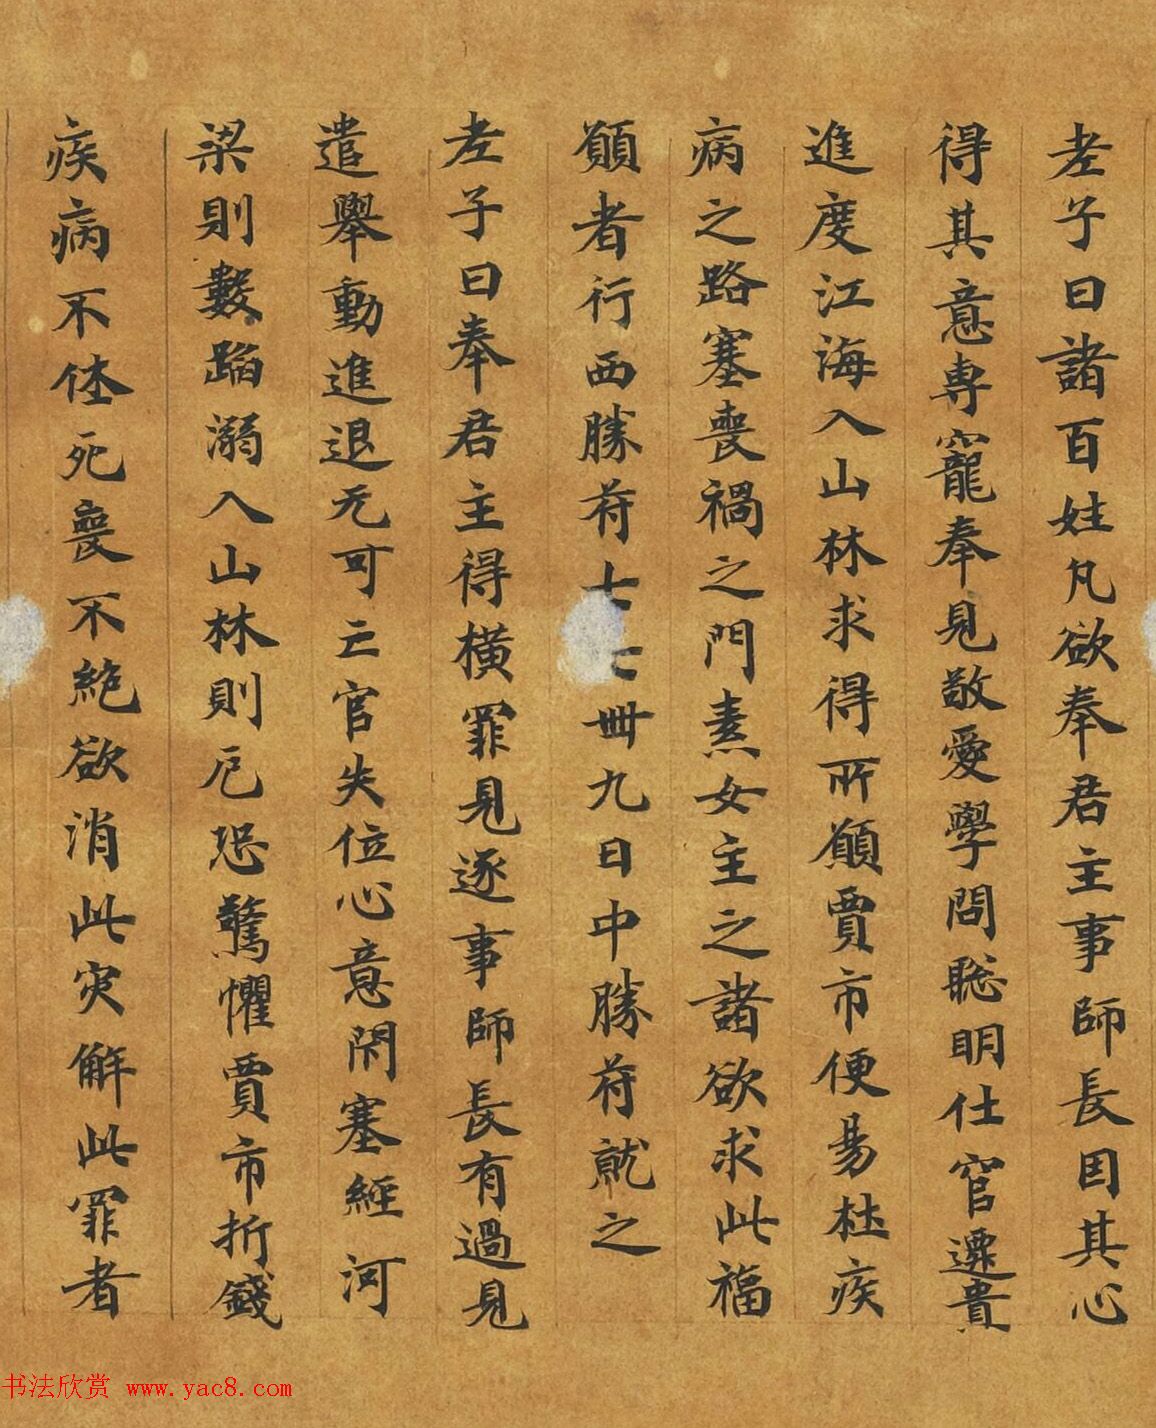 老子曰諸百姓凡欲奉君主事師長因其心
得其意專寵奉見敬愛學問聡明仕官遷貴
進度江海入山林求得所願賈市便易杜疾
病之路塞喪禍之門素女主之諸欲求此福
願者行西勝苻七七卌九日中勝苻就之
老子曰奉君主得橫罪見逐事師長有過見
遣舉動進退无可亡官失位心意閇塞經河
梁則數蹈溺入山林則厄恐驚懼賈市折錢
疾病不休死喪不絶欲消此灾解此罪者
书法欣赏 www.yac8.com